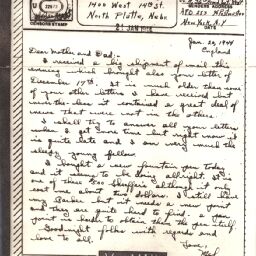 1400 West 14th St.
North Platte, Nebr.
SENDERS ADDRESS
New York, N.Y.
CENSORS STAMP
Jan. 20, 1944
England
Dear Mother and Dad:-
I received a big shipment of mail this
evening which brought also your letter of
December 17th. It is much older than some
of your other letters I have received but
nevertheless it contained a great deal of
news that were not in the others.
I shall try to answer all your letters
when I get some time but right now it
is quite late and I am very much the
sleepy young fellow.
I bought a new fountain pen today
and it seems to be doing allright. It is
one of these $5.00 Sheaffer's although it only
cost me about two dollars. I still have
my Parker but it needs a new point
and they are quite hard to find. a pen
point is harder to obtain than the pen itself.
Goodnight folks with regards and
love to all.
Love,